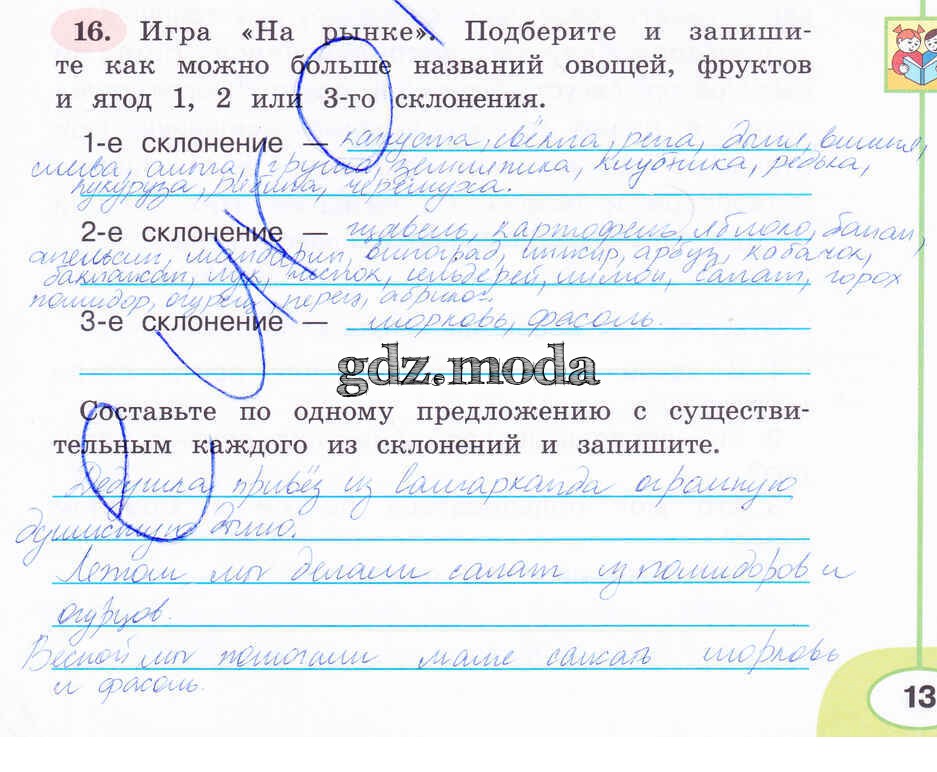 16. Игра «На рынке». Подберите и запиши-
те как можно больше названий овощей, фруктов
и ягод 1, 2 или 3-го склонения.
1-е склонение — капуста, свёкла, репа, дыня, вишня,
слива, айва, груша, земляника, клубника, редька,
кукуруза, рябина, черёмуха.
2-е склонение — щавель, картофель, яблоко, банан,
апельсин, мандарин, виноград, инжир, арбуз, кабачок,
баклажан, лук, чеснок, сельдерей, лимон, салат, горох
помидор, огурец, перец, абрикос.
3-е склонение — морковь, фасоль.
gdz.moda
Составьте по одному предложению с существи-
тельным каждого из склонений и запишите.
Дедушка привёз из огромную
душистую дыню.
Летом мы делали салат из помидоров и
огурцов.
Весной мы помогали маме сажать морковь
и фасоль.
13